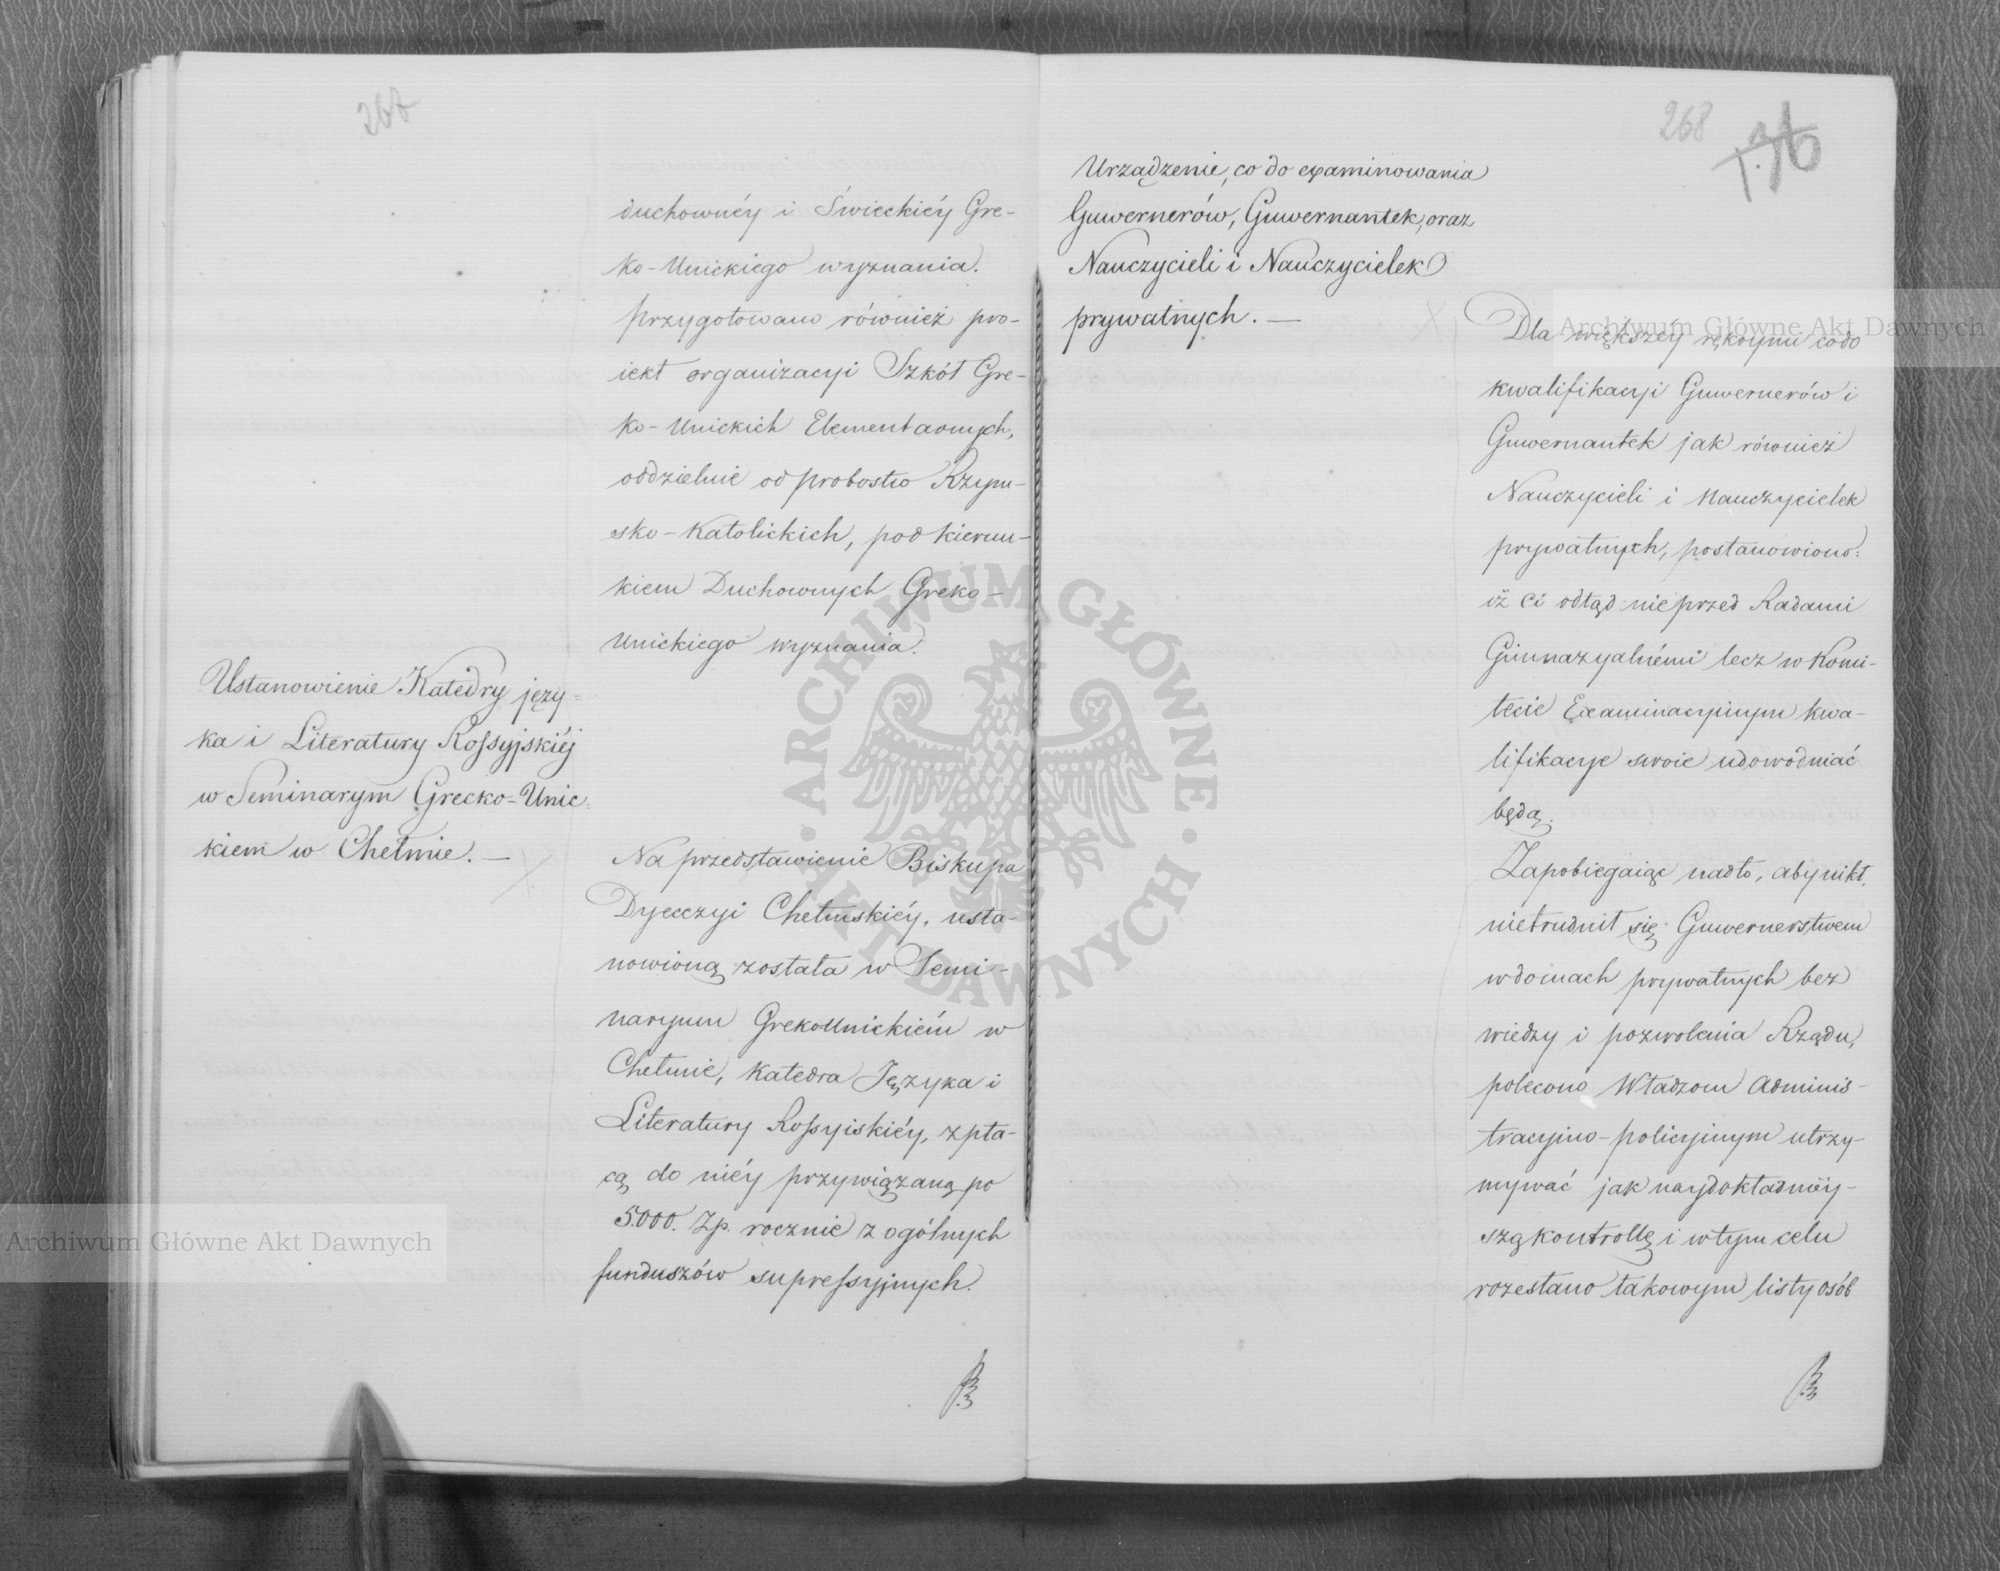 267
duchownéy i Świeckiéy Gre-
ko-Unickiego wyznania.
przygotowano również pro-
iekt organizacyi Szkół Gre-
ko-Unickich Elementarnych,
oddzielnie od probostw Rzym-
sko-Katolickich, pod kierun-
kiem Duchownych Greko-
Unickiego wyznania.
Ustanowienie Katedry języ-
ka i Literatury Rossyjskiéj
w Seminarym Grecko-Unic-
kiem w Chełmie. —
Na przedstawienie Biskupa
Dyecezyi Chełmskiéy, usta-
nowioną została w Semi-
naryum GrekoUnickiém w
Chełmie, Katedra Języka i
Literatury Rossyiskiéy, z pła-
cą do niéy przywiązaną po
5.000. Zp. rocznie z ogólnych
funduszów supressyjnych.
268
Urządzenie, co do examinowania
Guwernerów, Guwernantek, oraz
Nauczycieli i Nauczycielek
prywatnych. —
Dla większéy rękoymi co do
kwalifikacyi Guwernerów i
Guwernantek jak również
Nauczycieli i Nauczycielek
prywatnych, postanowiono:
iż ci odtąd nie przed Radami
Gimnazyalnémi lecz w Komi-
tecie Examinacyinym kwa-
lifikacye swoie udowodniać
będą.
Zapobiegaiąc nadto, aby nikt
nietrudnił się Guwernerstwem
w domach prywatnych bez
wiedzy i pozwolenia Rządu,
polecono Władzom Adminis-
tracyjno-policyjnym utrzy-
mywać jak naydokładniéy-
szą kontrollę i w tym celu
rozesłano takowym listy osób
Archiwum Główne Akt Dawnych
Archiwum Główne Akt Dawnych
ARCHIWUM GŁÓWNE
AKT DAWNYCH